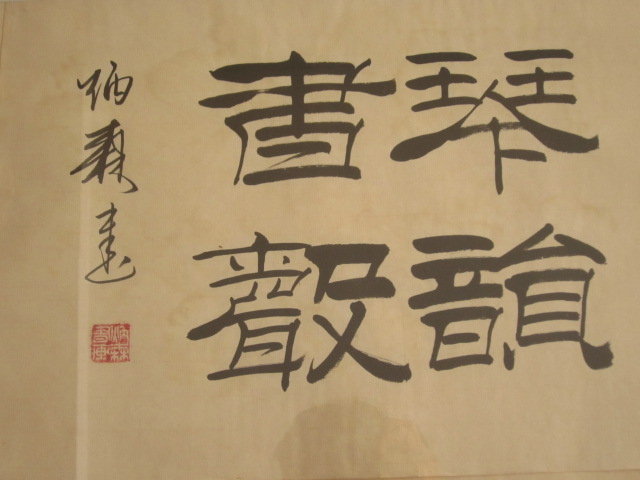 琴韻
書聲
炳森書